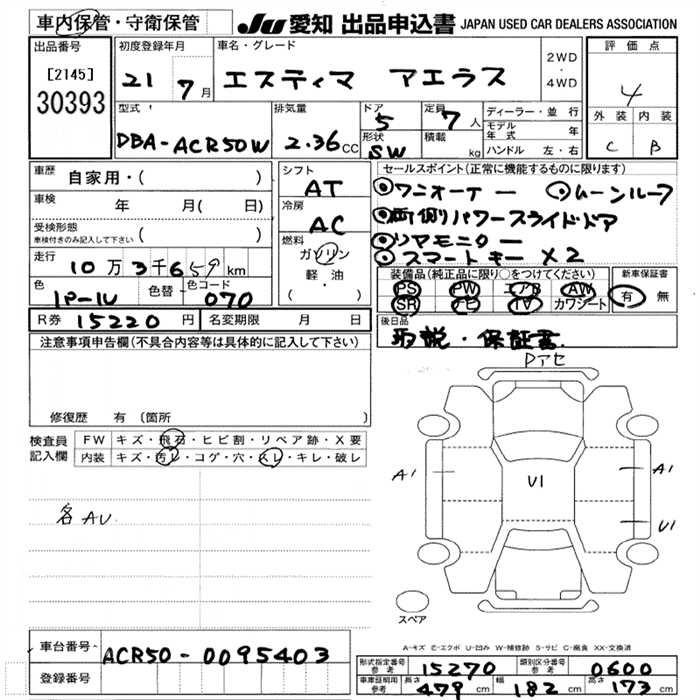 車内保管・守衛保管
JU 愛知 出品申込書 JAPAN USED CAR DEALERS ASSOCIATION
出品番号
[2145]
30393
初度登録年月
21 7月
車名・グレード
エスティマ アエラス
2WD
・
4WD
評価点
4
外装 内装
C B
型式
DBA-ACR50W
排気量
2.36cc
ドア
5
形状
SW
定員
7人
積載
kg
ディーラー・並行
モデル年式 年
ハンドル 左・右
車歴 自家用・( )
車検 年 月( 日)
受検形態
車検付きのみ記入して下さい ( )
走行 10万3千659km
色 パール 色替 色コード 070
シフト
AT
冷房
AC
燃料
ガソリン
軽・油
( )
セールスポイント(正常に機能するものに限ります)
◎ワンオーナー ◎ムーンルーフ
◎両側パワースライドドア
◎リヤモニター
◎スマートキーX2
装備品(純正品に限り○をつけてください)
PS PW エアB AW
SR ナビ TV カワシート
新車保証書
有 無
R券 15220円 名変期限 月 日
後日品
取説・保証書
注意事項申告欄(不具合内容等は具体的に記入して下さい)
修復歴 有(箇所
検査員記入欄
FW キズ・飛石・ヒビ割・リペア跡・X要
内装 キズ・汚レ・コゲ・穴・スレ・キレ・破レ
各AU
Pアセ
A1
U1
A1
U1
スペア
A-キズ E-エクボ U-凹み W-補修跡 S-サビ C-腐食 XX-交換済
車台番号 ACR50-0095403
登録番号
形式指定番号 参考 15270 類別区分番号 参考 0600
車庫証明用 参考 長さ 479cm 幅 182cm 高さ 173cm